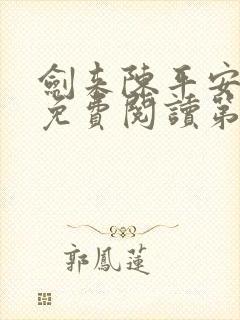 劍來陳平安
免費閱讀第
郭鳳蓮